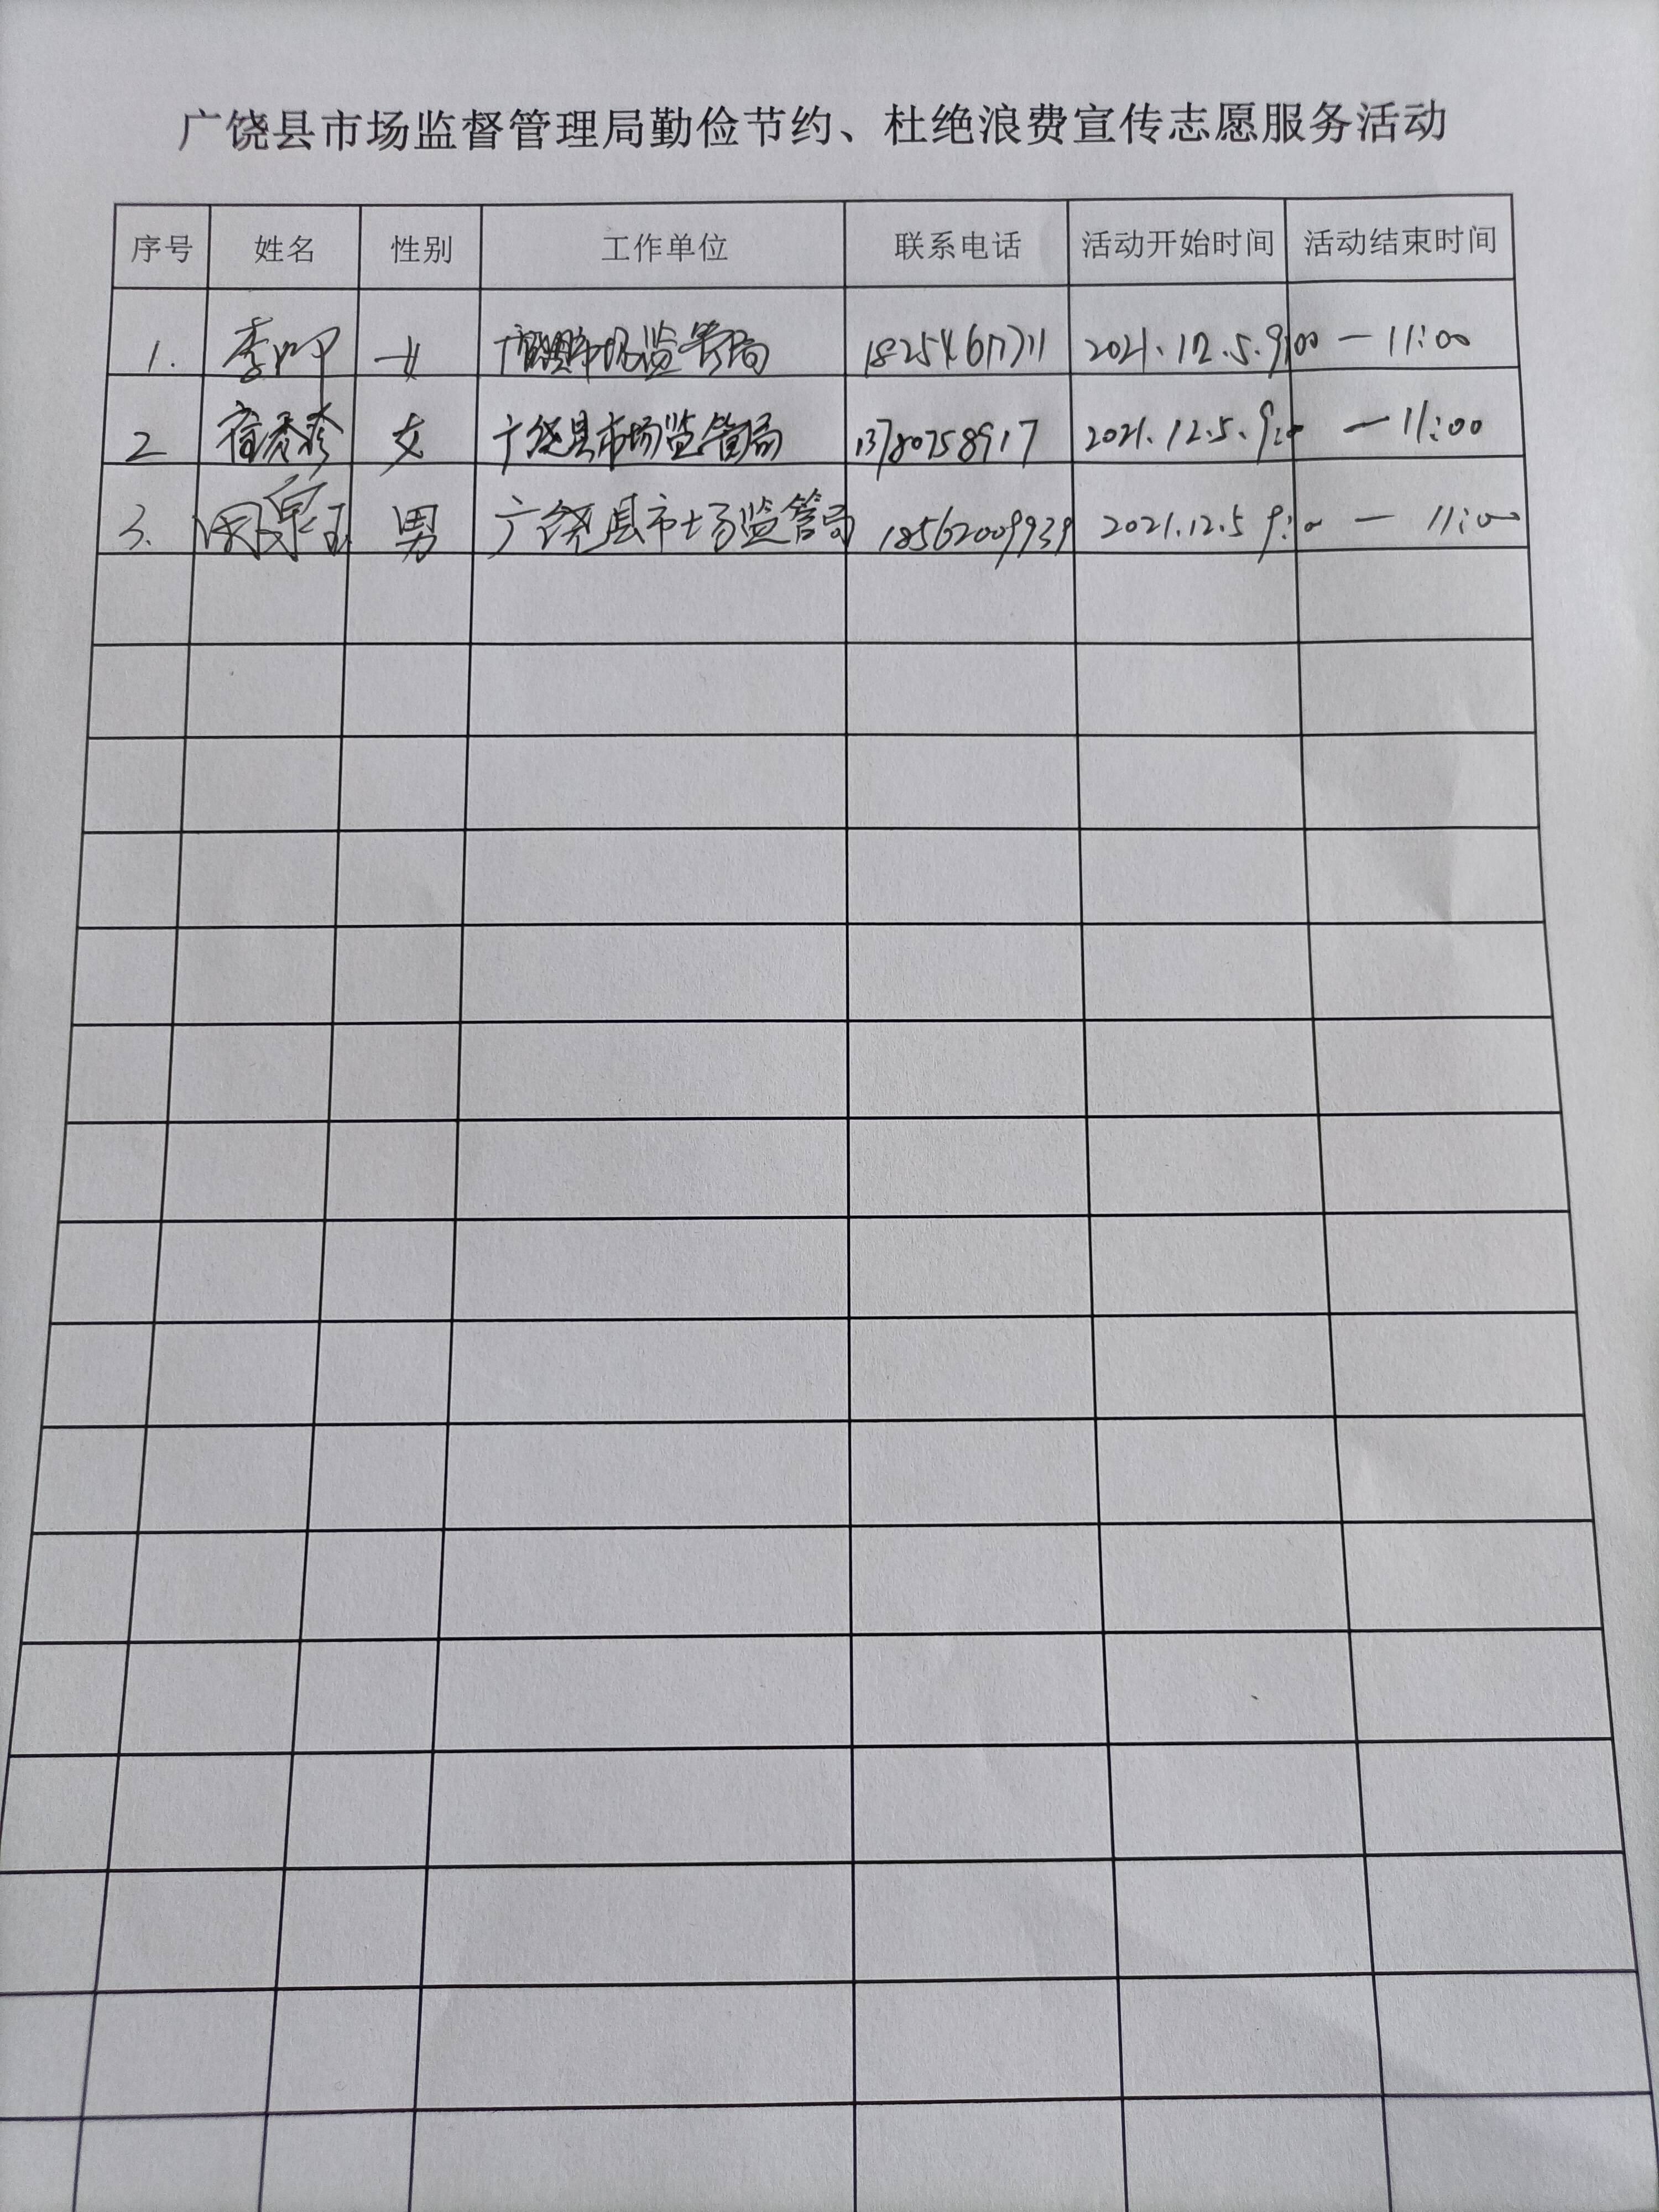 广饶县市场监督管理局勤俭节约、杜绝浪费宣传志愿服务活动
序号 姓名 性别 工作单位 联系电话 活动开始时间 活动结束时间
1. 李 女 广饶县市场监管局 2021.12.5.9:00 — 11:00
2 女 广饶县市场监管局 13780758917 2021.12.5.9:00 — 11:00
3. 男 广饶县市场监管局 18562009939 2021.12.5 9:00 — 11:00